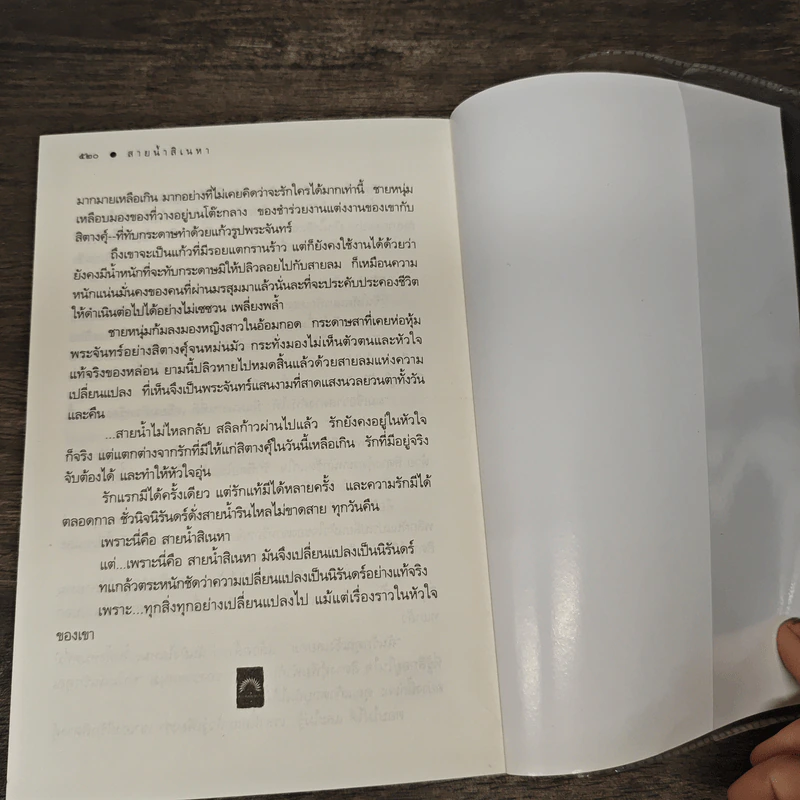 ๕๒๐ ● สายน้ำสิเนหา
มากมายเหลือเกิน มากอย่างที่ไม่เคยคิดว่าจะรักใครได้มากเท่านี้ ชายหนุ่ม
เหลือบมองของที่วางอยู่บนโต๊ะกลาง ของชำร่วยงานแต่งงานของเขากับ
สิตางศุ์--ที่ทับกระดาษทำด้วยแก้วรูปพระจันทร์
ถึงเขาจะเป็นแก้วที่มีรอยแตกรานร้าว แต่ก็ยังคงใช้งานได้ด้วยว่า
ยังคงมีน้ำหนักที่จะทับกระดาษมิให้ปลิวลอยไปกับสายลม ก็เหมือนความ
หนักแน่นมั่นคงของคนที่ผ่านมรสุมมาแล้วนั่นละที่จะประคับประคองชีวิต
ให้ดำเนินต่อไปได้อย่างไม่เซซวน เพลี่ยงพล้ำ
ชายหนุ่มก้มลงมองหญิงสาวในอ้อมกอด กระดาษสาที่เคยห่อหุ้ม
พระจันทร์อย่างสิตางศุ์จนหม่นมัว กระทั่งมองไม่เห็นตัวตนและหัวใจ
แท้จริงของหล่อน ยามนี้ปลิวหายไปหมดสิ้นแล้วด้วยสายลมแห่งความ
เปลี่ยนแปลง ที่เห็นจึงเป็นพระจันทร์แสนงามที่สาดแสงนวลยวนตาทั้งวัน
และคืน
...สายน้ำไม่ไหลกลับ สลิลก้าวผ่านไปแล้ว รักยังคงอยู่ในหัวใจ
ก็จริง แต่แตกต่างจากรักที่มีให้แก่สิตางศุ์ในวันนี้เหลือเกิน รักที่มีอยู่จริง
จับต้องได้ และทำให้หัวใจอุ่น
รักแรกมีได้ครั้งเดียว แต่รักแท้มีได้หลายครั้ง และความรักมีได้
ตลอดกาล ชั่วนิจนิรันดร์ดั่งสายน้ำรินไหลไม่ขาดสาย ทุกวันคืน
เพราะนี่คือ สายน้ำสิเนหา
แต่...เพราะนี่คือ สายน้ำสิเนหา มันจึงเปลี่ยนแปลงเป็นนิรันดร์
ทแกล้วตระหนักชัดว่าความเปลี่ยนแปลงเป็นนิรันดร์อย่างแท้จริง
เพราะ...ทุกสิ่งทุกอย่างเปลี่ยนแปลงไป แม้แต่เรื่องราวในหัวใจ
ของเขา